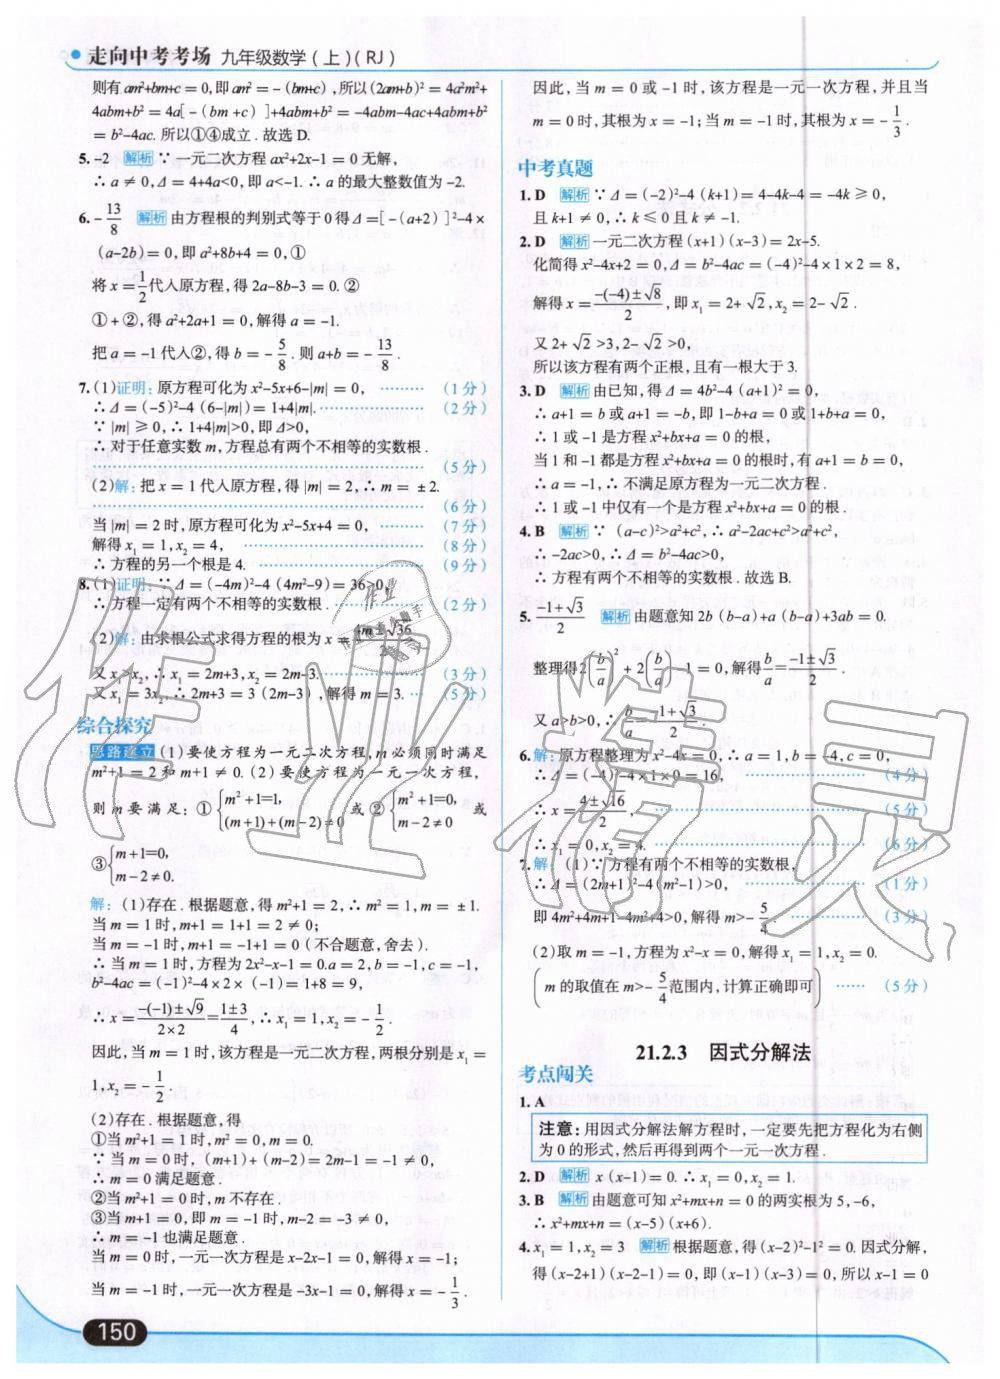 走向中考考场 九年级数学(上)(RJ)
则有am²+bm+c=0,即am²=-(bm+c),所以(2am+b)²=4a²m²+
4abm+b²=4a[-(bm+c)]+4abm+b²=-4abm-4ac+4abm+b²
=b²-4ac.所以①④成立.故选D.
5.-2 解析∵一元二次方程ax²+2x-1=0无解,
∴a≠0,Δ=4+4a<0,即a<-1.∴a的最大整数值为-2.
6.-13/8 解析由方程根的判别式等于0得Δ=[-(a+2)]²-4×
(a-2b)=0,即a²+8b+4=0,①
将x=1/2代入原方程,得2a-8b-3=0.②
①+②,得a²+2a+1=0,解得a=-1.
把a=-1代入②,得b=-5/8.则a+b=-13/8.
7.(1)证明:原方程可化为x²-5x+6-|m|=0, ………(1分)
∴Δ=(-5)²-4(6-|m|)=1+4|m|.………(2分)
∵|m|≥0,∴1+4|m|>0,即Δ>0,
∴对于任意实数m,方程总有两个不相等的实数根.
………(5分)
(2)解:把x=1代入原方程,得|m|=2,∴m=±2.
………(6分)
当|m|=2时,原方程可化为x²-5x+4=0, ………(7分)
解得x₁=1,x₂=4, ………(8分)
∴方程的另一个根是4. ………(9分)
8.(1)证明:∵Δ=(-4m)²-4(4m²-9)=36>0,
∴方程一定有两个不相等的实数根. ………(2分)
(2)解:由求根公式求得方程的根为x=(4m±√36)/2
又x₁>x₂,∴x₁=2m+3,x₂=2m-3.………(3分)
又x₁=3x₂,∴2m+3=3(2m-3),解得m=3. …(5分)
综合探究
思路建立 (1)要使方程为一元二次方程,m必须同时满足
m²+1=2和m+1≠0.(2)要使方程为一元一次方程,
则m要满足:①{m²+1=1, (m+1)+(m-2)≠0 或②{m²+1=0, m-2≠0 或
③{m+1=0, m-2≠0.
解:(1)存在.根据题意,得m²+1=2,∴m²=1,m=±1.
当m=1时,m+1=1+1=2≠0;
当m=-1时,m+1=-1+1=0(不合题意,舍去).
∴当m=1时,方程为2x²-x-1=0.a=2,b=-1,c=-1,
b²-4ac=(-1)²-4×2×(-1)=1+8=9,
∴x=(-(-1)±√9)/(2×2)=(1±3)/4,∴x₁=1,x₂=-1/2.
因此,当m=1时,该方程是一元二次方程,两根分别是x₁=
1,x₂=-1/2.
(2)存在.根据题意,得
①当m²+1=1时,m²=0,m=0.
∵当m=0时,(m+1)+(m-2)=2m-1=-1≠0,
∴m=0满足题意.
②当m²+1=0时,m不存在.
③当m+1=0,即m=-1时,m-2=-3≠0,
∴m=-1也满足题意.
当m=0时,一元一次方程是x-2x-1=0,解得x=-1;
当m=-1时,一元一次方程是-3x-1=0,解得x=-1/3.
150
因此,当m=0或-1时,该方程是一元一次方程,并且当
m=0时,其根为x=-1;当m=-1时,其根为x=-1/3.
中考真题
1.D 解析∵Δ=(-2)²-4(k+1)=4-4k-4=-4k≥0,
且k+1≠0,∴k≤0且k≠-1.
2.D 解析一元二次方程(x+1)(x-3)=2x-5.
化简得x²-4x+2=0,Δ=b²-4ac=(-4)²-4×1×2=8,
解得x=(-(-4)±√8)/2,即x₁=2+√2,x₂=2-√2.
又2+√2>3,2-√2>0,
所以该方程有两个正根,且有一根大于3.
3.D 解析由已知,得Δ=4b²-4(a+1)²=0,
∴a+1=b或a+1=-b,即1-b+a=0或1+b+a=0,
∴1或-1是方程x²+bx+a=0的根,
当1和-1都是方程x²+bx+a=0的根时,有a+1=b=0,
∴a=-1,∴不满足原方程为一元二次方程.
∴1或-1中仅有一个是方程x²+bx+a=0的根.
4.B 解析∵(a-c)²>a²+c²,∴a²-2ac+c²>a²+c²,
∴-2ac>0,∴Δ=b²-4ac>0,
∴方程有两个不相等的实数根.故选B.
5.(-1+√3)/2 解析由题意知2b(b-a)+a(b-a)+3ab=0.
整理得2(b/a)²+2(b/a)-1=0,解得b/a=(-1±√3)/2.
又a>b>0,∴b/a=(-1+√3)/2.
6.解:原方程整理为x²-4x=0,∴a=1,b=-4,c=0,
∴Δ=(-4)²-4×1×0=16,………(4分)
∴x=(4±√16)/2,………(5分)
∴x₁=0,x₂=4.………(6分)
7.解:(1)∵方程有两个不相等的实数根,
∴Δ=(2m+1)²-4(m²-1)>0,………(1分)
即4m²+4m+1-4m²+4>0,解得m>-5/4.………(3分)
(2)取m=-1,方程为x²-x=0,解得x₁=1,x₂=0.
(m的取值在m>-5/4范围内,计算正确即可) ……(5分)
21.2.3 因式分解法
考点闯关
1.A
注意:用因式分解法解方程时,一定要先把方程化为右侧
为0的形式,然后再得到两个一元一次方程.
2.D 解析 x(x-1)=0.∴x₁=0,x₂=1.
3.B 解析由题意可知x²+mx+n=0的两实根为5,-6,
∴x²+mx+n=(x-5)(x+6).
4.x₁=1,x₂=3 解析根据题意,得(x-2)²-1²=0.因式分解,
得(x-2+1)(x-2-1)=0,即(x-1)(x-3)=0,所以x-1=0
作业精灵